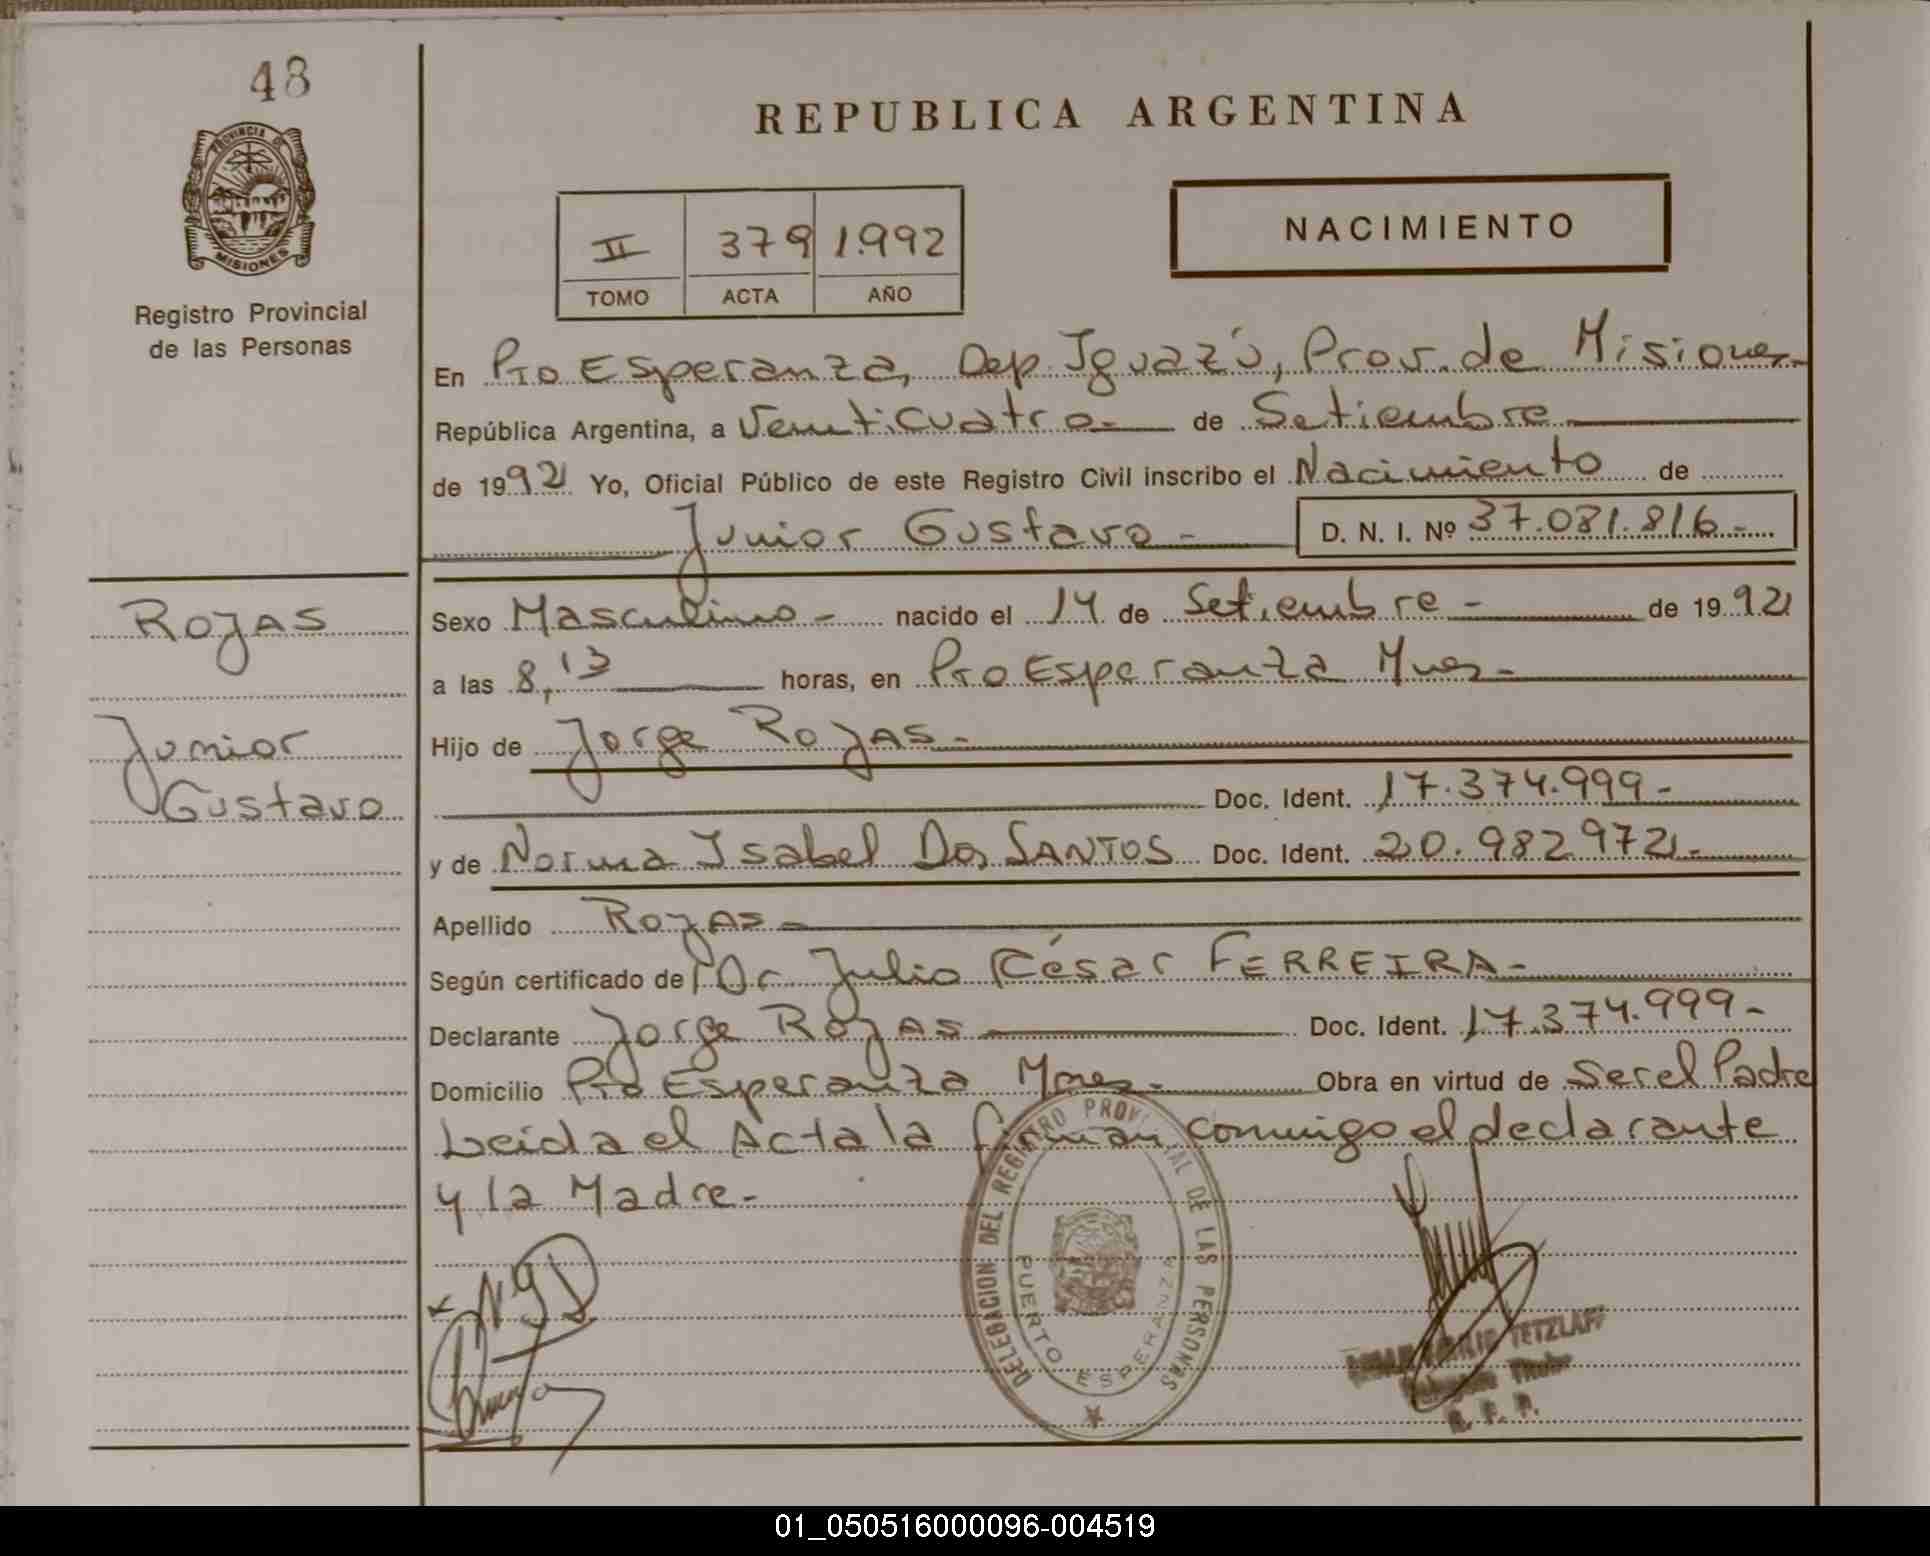 48
PROVINCIA DE
MISIONES
Registro Provincial
de las Personas
REPUBLICA ARGENTINA
II 379 1.992
TOMO ACTA AÑO
NACIMIENTO
En Pto Esperanza, Dep. Iguazú, Prov. de Misiones.-
República Argentina, a Venticuatro.- de Setiembre
de 1992 Yo, Oficial Público de este Registro Civil inscribo el Nacimiento de
Junior Gustavo - D. N. I. Nº 37.081.816.-
ROJAS
Junior
Gustavo
Sexo Masculino - nacido el 14 de Setiembre - de 1992
a las 8,13 horas, en Pto Esperanza Mnes.-
Hijo de Jorge ROJAS.-
Doc. Ident. 17.374.999.-
y de Norma Isabel Dos SANTOS Doc. Ident. 20.982.972.-
Apellido ROJAS -
Según certificado de Dr. Julio César FERREIRA.-
Declarante Jorge ROJAS Doc. Ident. 17.374.999.-
Domicilio Pto Esperanza Mnes.- Obra en virtud de Ser el Padre
Leida el Acta la firman conmigo el declarante
y la Madre.-
DELEGACION DEL REGISTRO PROVINCIAL DE LAS PERSONAS
PUERTO ESPERANZA
TETZLAFF
R. P. P.
01_050516000096-004519